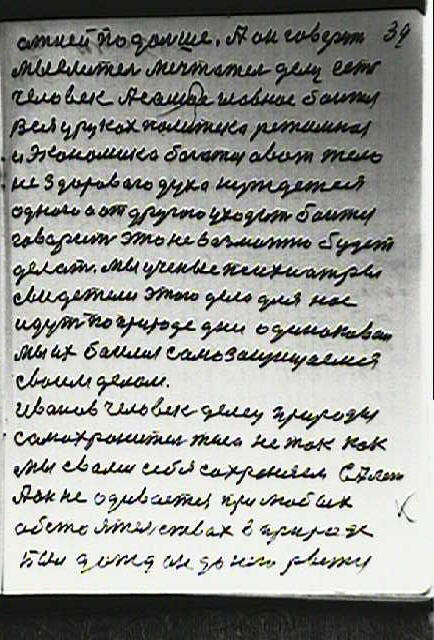 39
от ней по дальше. А он говерт
мыслител мечтател делу сеть
человек А самае главное боится
Вся у руках политека режимная
и Экономика богатая авот тело
не здороваго духа нуждется
одново а от другого уходит боится
говарит это не возможно будет
делат. Мы ученые психиатры
свидетели этого дело для нас
идут по природе дни одинаковаи
мы их боимся самозащищаемся
своим делом.
Иванов человек делец природы
самохронител тела не так как
мы свами себя сохроняем С Алет
А он не одивается при любых
абстоятелствах в природе
Был дожд он до ного рвется